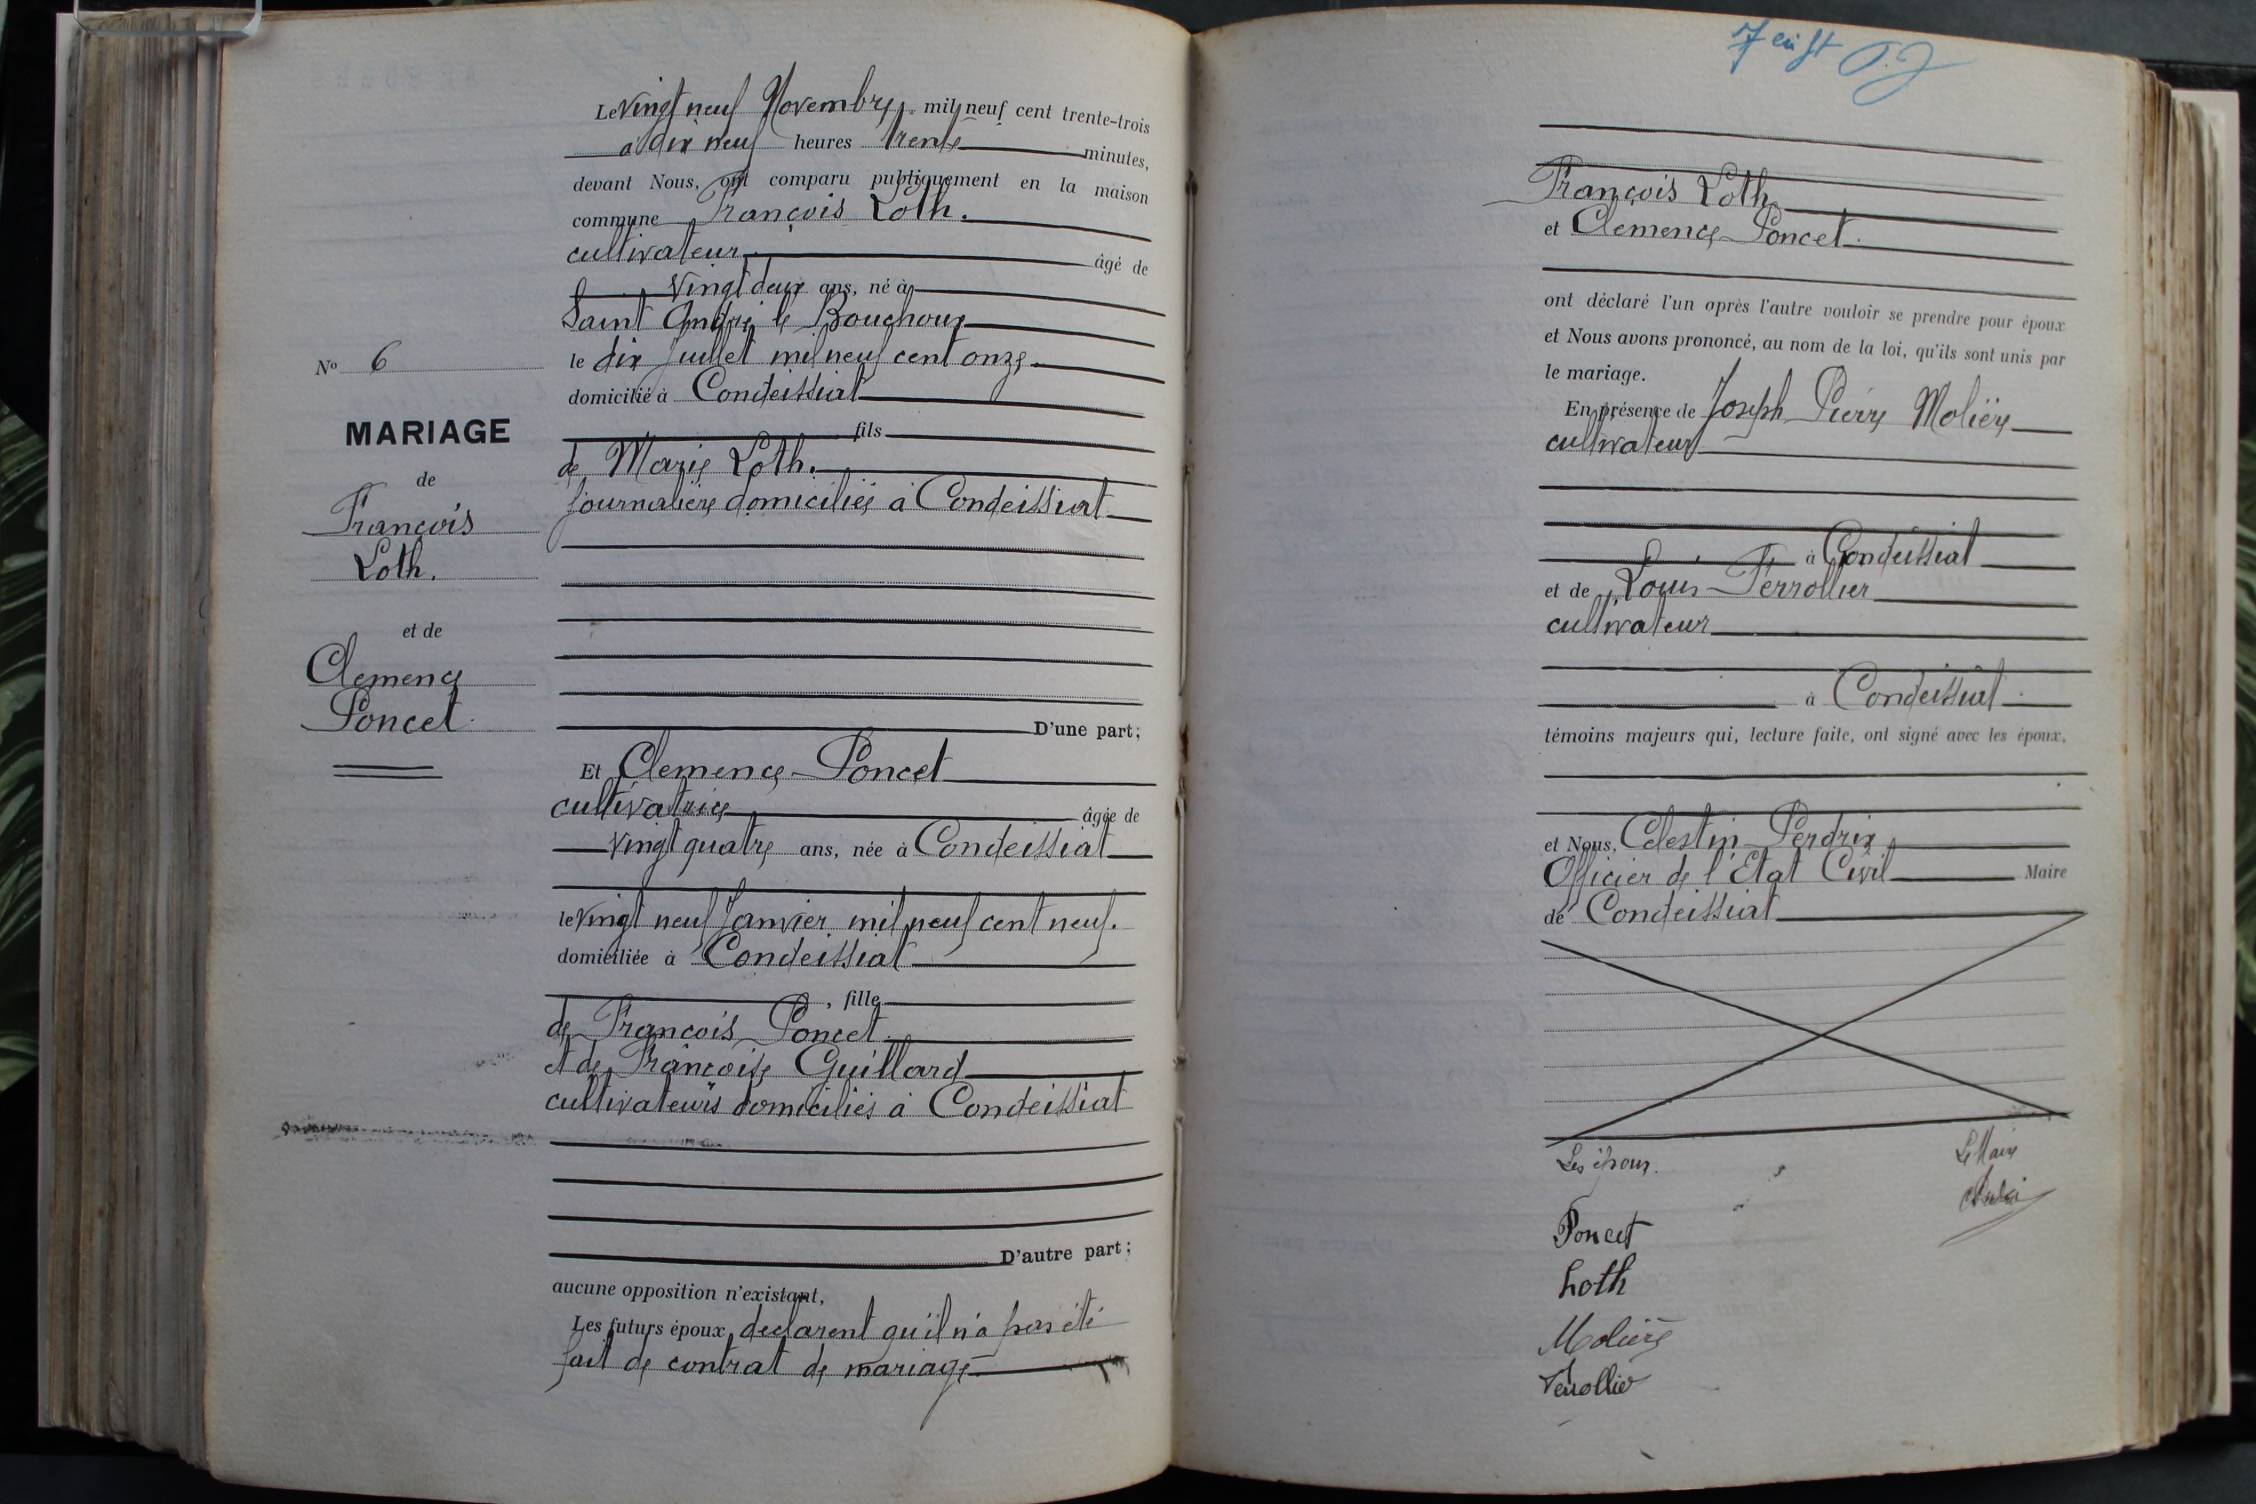 Le vingt neuf Novembre, mil neuf cent trente-trois
à dix neuf heures trente minutes,
devant Nous, ont comparu publiquement en la maison
commune François Loth.
cultivateur âgé de
vingt deux ans, né à
Saint André le Bouchoux
le dix Juillet mil neuf cent onze
domicilié à Condeissiat
fils
de Marie Loth.
journalière domiciliée à Condeissiat
D'une part;
N° 6
MARIAGE
de
François
Loth.
et de
Clemence
Poncet
Et Clemence Poncet
cultivatrice âgée de
vingt quatre ans, née à Condeissiat
le vingt neuf Janvier mil neuf cent neuf.
domiciliée à Condeissiat
, fille
de François Poncet
et de Françoise Guillard
cultivateurs domiciliés à Condeissiat
D'autre part;
aucune opposition n'existant,
Les futurs époux declarent qu'il n'a pas été
fait de contrat de mariage
François Loth
et Clemence Poncet.
ont déclaré l'un après l'autre vouloir se prendre pour époux
et Nous avons prononcé, au nom de la loi, qu'ils sont unis par
le mariage.
En présence de Joseph Pierre Molière
cultivateur
à Condeissiat
et de Louis Ferrollier
cultivateur
à Condeissiat
témoins majeurs qui, lecture faite, ont signé avec les époux,
et Nous, Celestin Perdrix
Officier de l'Etat Civil Maire
de Condeissiat
Les époux. Le Maire
Poncet
Loth
Molière